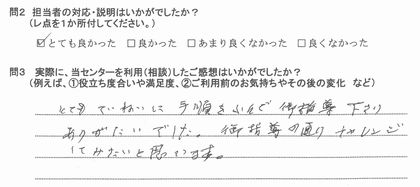 問2 担当者の対応・説明はいかがでしたか?
(レ点を1か所付してください。)
☑とても良かった □良かった □あまり良くなかった □良くなかった
問3 実際に、当センターを利用(相談)したご感想はいかがでしたか?
(例えば、①役立ち度合いや満足度、②ご利用前のお気持ちやその後の変化 など)
とてもていねいに手順をふんで御指導下さり
ありがたいでした。御指導の通りチャレンジ
してみたいと思ってます。